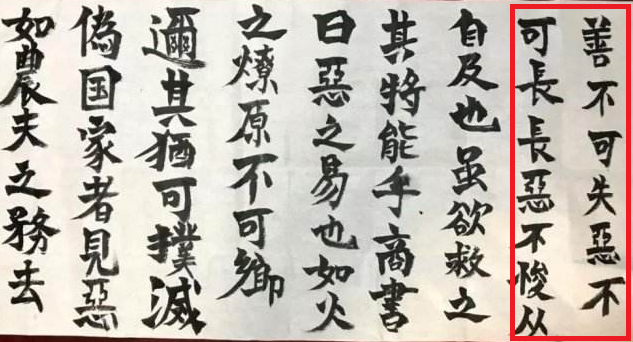 善不可失惡不
可長長惡不悛从
自及也虽欲救之
其将能乎商書
曰惡之易也如火
之燎原不可鄉
邇其猶可撲滅
偽国家者見惡
如農夫之務去